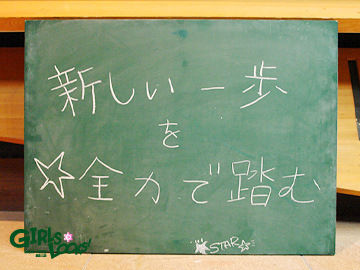 新しい一歩
を
☆全力で踏む
STAR☆
GIRLS LOCKS!